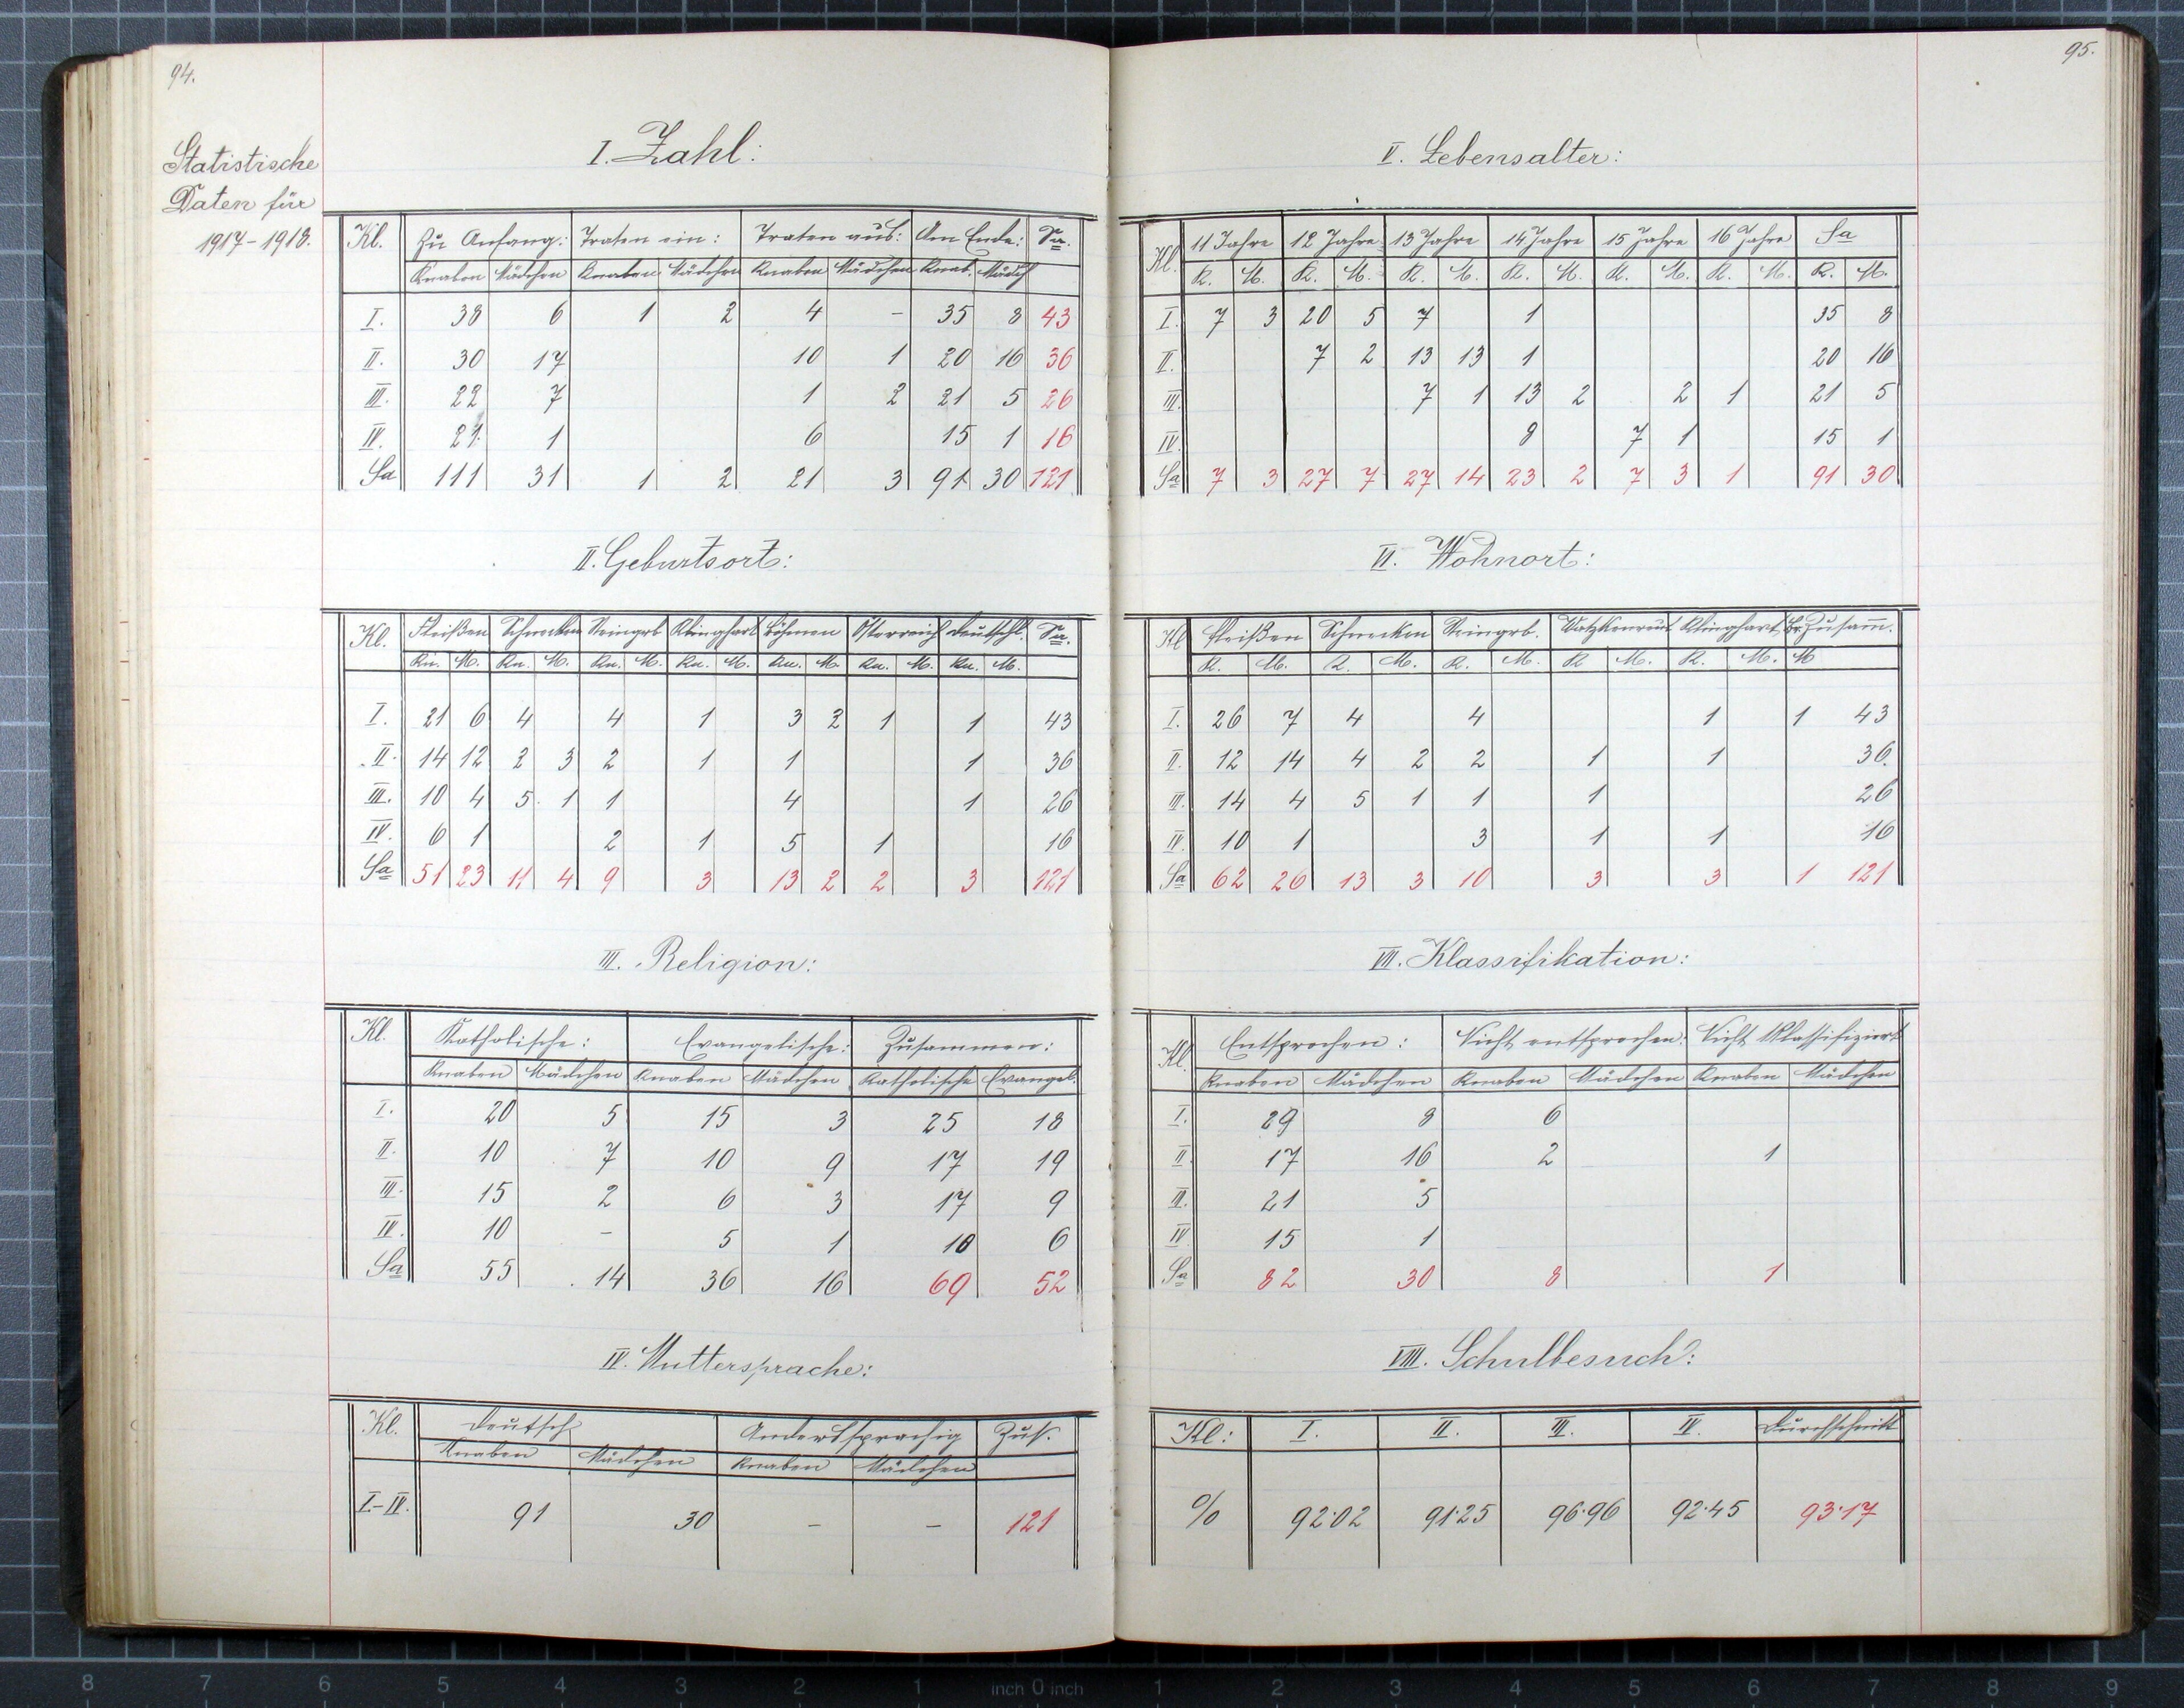 94.
Statistische
Daten für
1917-1918.
I. Zahl:
Kl. Zu Anfang: Traten ein: Traten aus: Am Ende: Sa.
Knaben Mädchen Knaben Mädchen Knaben Mädchen Knab. Mädch
I. 38 6 1 2 4 - 35 8 43
II. 30 17 10 1 20 16 36
III. 22 7 1 2 21 5 26
IV. 21 1 6 15 1 16
Sa 111 31 1 2 21 3 91 30 121
II. Geburtsort:
Kl. Fleißen Schnecken Steingrb Klinghart Böhmen Österreich Deutschl. Sa.
Kn. M. Kn. M. Kn. M. Kn. M. Kn. M. Kn. M. Kn. M.
I. 21 6 4 4 1 3 2 1 1 43
II. 14 12 2 3 2 1 1 1 36
III. 10 4 5 1 1 4 1 26
IV. 6 1 2 1 5 1 16
Sa 51 23 11 4 9 3 13 2 2 3 121
III. Religion:
Kl. Katholische: Evangelische: Zusammen:
Knaben Mädchen Knaben Mädchen Katholische Evangel.
I. 20 5 15 3 25 18
II. 10 7 10 9 17 19
III. 15 2 6 3 17 9
IV. 10 - 5 1 10 6
Sa 55 14 36 16 69 52
IV. Muttersprache:
Kl. Deutsch Anderssprachig Zus.
Knaben Mädchen Knaben Mädchen
I.-IV. 91 30 - - 121
95.
V. Lebensalter:
Kl. 11 Jahre 12 Jahre 13 Jahre 14 Jahre 15 Jahre 16 Jahre Sa
K. M. K. M. K. M. K. M. K. M. K. M. K. M.
I. 7 3 20 5 7 1 35 8
II. 7 2 13 13 1 20 16
III. 7 1 13 2 2 1 21 5
IV. 8 7 1 15 1
Sa 7 3 27 7 27 14 23 2 7 3 1 91 30
VI. Wohnort:
Kl Fleißen Schnecken Steingrb. Watzkenreut Klinghart Zusam̄.
K. M. K. M. K. M. K M. K. M. M
I. 26 7 4 4 1 1 43
II. 12 14 4 2 2 1 1 36.
III. 14 4 5 1 1 1 26
IV. 10 1 3 1 1 16
Sa 62 26 13 3 10 3 3 1 121
VII. Klassifikation:
Kl. Entsprochen: Nicht entsprochen: Nicht klassifiziert
Knaben Mädchen Knaben Mädchen Knaben Mädchen
I. 29 8 6
II. 17 16 2 1
II. 21 5
IV 15 1
Sa 82 30 8 1
VIII. Schulbesuch:
Kl: I. II. III. IV. Durchschnitt
% 92·02 91·25 96·96 92·45 93·17
8 7 6 5 4 3 2 1 inch 0 inch 1 2 3 4 5 6 7 8 9